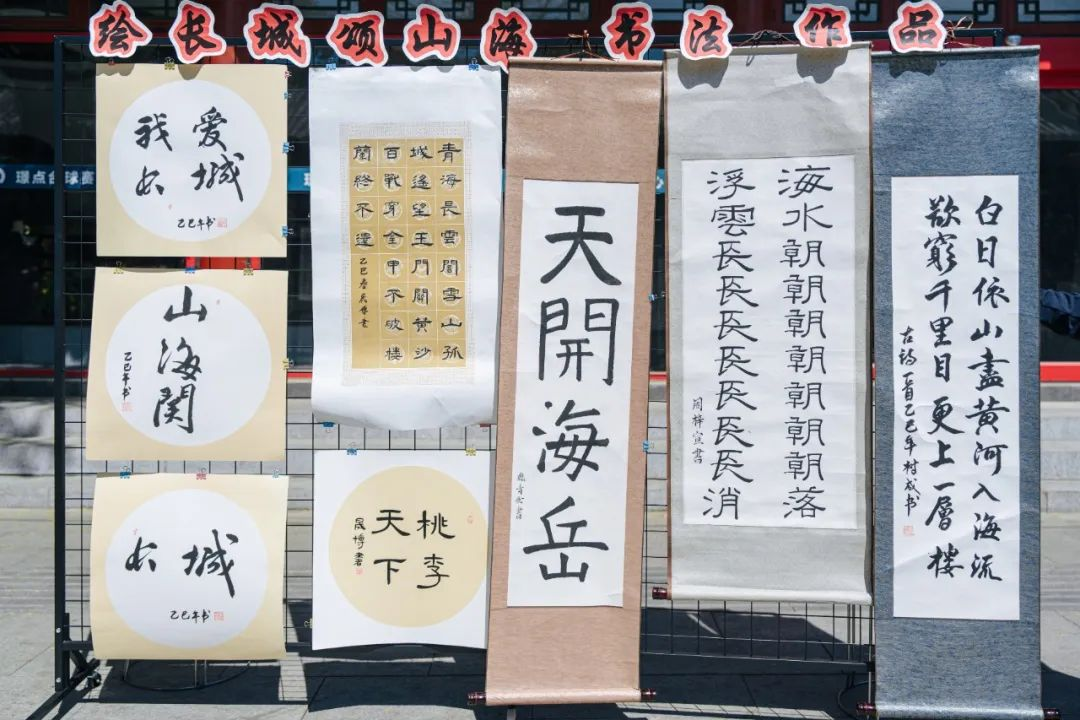 绘长城颂山海书法作品
我爱
长城
乙巳年书
山海関
乙巳年书
长城
乙巳年书
青海長雲闇雪山孤
城遙望玉門關黃沙
百戰穿金甲不破樓
蘭終不還
乙巳春
桃李
天下
晟博書
天開海岳
海水朝朝朝朝朝朝朝落
浮雲長長長長長長長消
白日依山盡黄河入海流
欲窮千里目更上一層楼
古诗一首乙巳年村成书
璟点台球